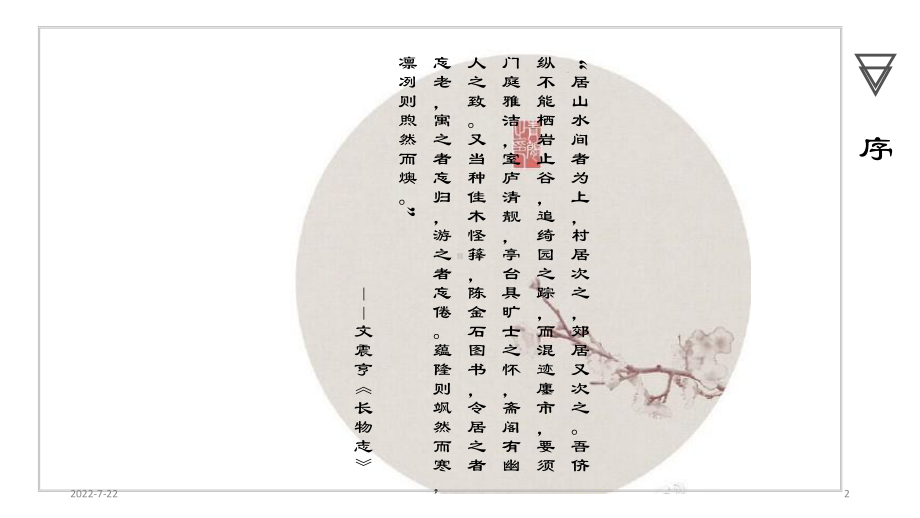 序
“居山水间者为上，村居次之，郊居又次之。吾侪
纵不能栖岩止谷，追绮园之踪，而混迹廛市，要须
门庭雅洁，室庐清靓，亭台具旷士之怀，斋阁有幽
人之致。又当种佳木怪箨，陈金石图书，令居之者
忘老，寓之者忘归，游之者忘倦。蕴隆则飒然而寒，
凛冽则煦然而燠。”
——文震亨《长物志》
2022-7-22
2